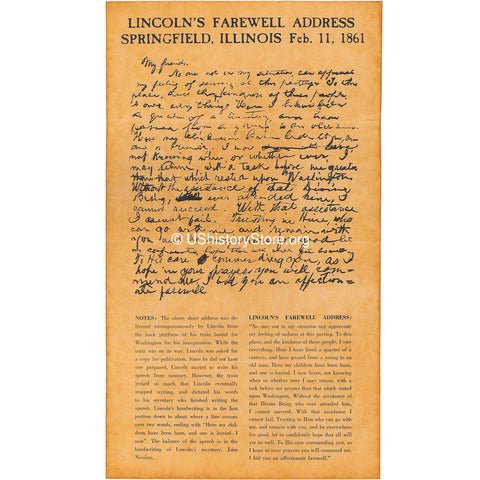 LINCOLN'S FAREWELL ADDRESS
SPRINGFIELD, ILLINOIS Feb. 11, 1861
My friends.
No one not in my situation can appreciate
my feeling of sadness at this parting. To this
place, and the kindness of these people,
I owe every thing. Here I have been
a quarter of a century, and have
passed from a young to an old man.
Here my children have been born, and
one is buried. I now leave,
not knowing when, or whether ever, I
may return, with a task before me greater
than that which rested upon Washington.
Without the assistance of that Divine
Being, who ever attended him, I
cannot succeed. With that assistance
I cannot fail. Trusting in Him, who
can go with me, and remain with
you and
be well
To His care commending you, as I
hope in your prayers you will com-
mend me, I bid you an affection-
ate farewell
© UShistoryStore.org
NOTES: The above short address was de-
livered extemporaneously by Lincoln from
the back platform of his train bound for
Washington for his inauguration. While the
train was on its way, Lincoln was asked for
a copy for publication. Since he did not have
one prepared, Lincoln started to write his
speech from memory. However, the train
jerked so much that Lincoln eventually
stopped writing, and dictated his words
to his secretary who finished writing the
speech. Lincoln's handwriting is in the first
portion down to about where a line crosses
over two words, ending with "Here my chil-
dren have been born, and one is buried. I
now". The balance of the speech is in the
handwriting of Lincoln's secretary. John
Nicolay.
LINCOLN'S FAREWELL ADDRESS:
"No one, not in my situation can appreciate
my feeling of sadness at this parting. To this
place, and the kindness of these people, I owe
everything. Here I have lived a quarter of a
century, and have passed from a young to an
old man. Here my children have been born,
and one is buried. I now leave, not knowing
when or whether ever I may return, with a
task before me greater than that which rested
upon Washington. Without the assistance of
that Divine Being who ever attended him,
I cannot succeed. With that assistance I
cannot fail. Trusting in Him who can go with
me, and remain with you, and be everywhere
for good, let us confidently hope that all will
yet be well. To His care commending you, as
I hope in your prayers you will commend me,
I bid you an affectionate farewell."